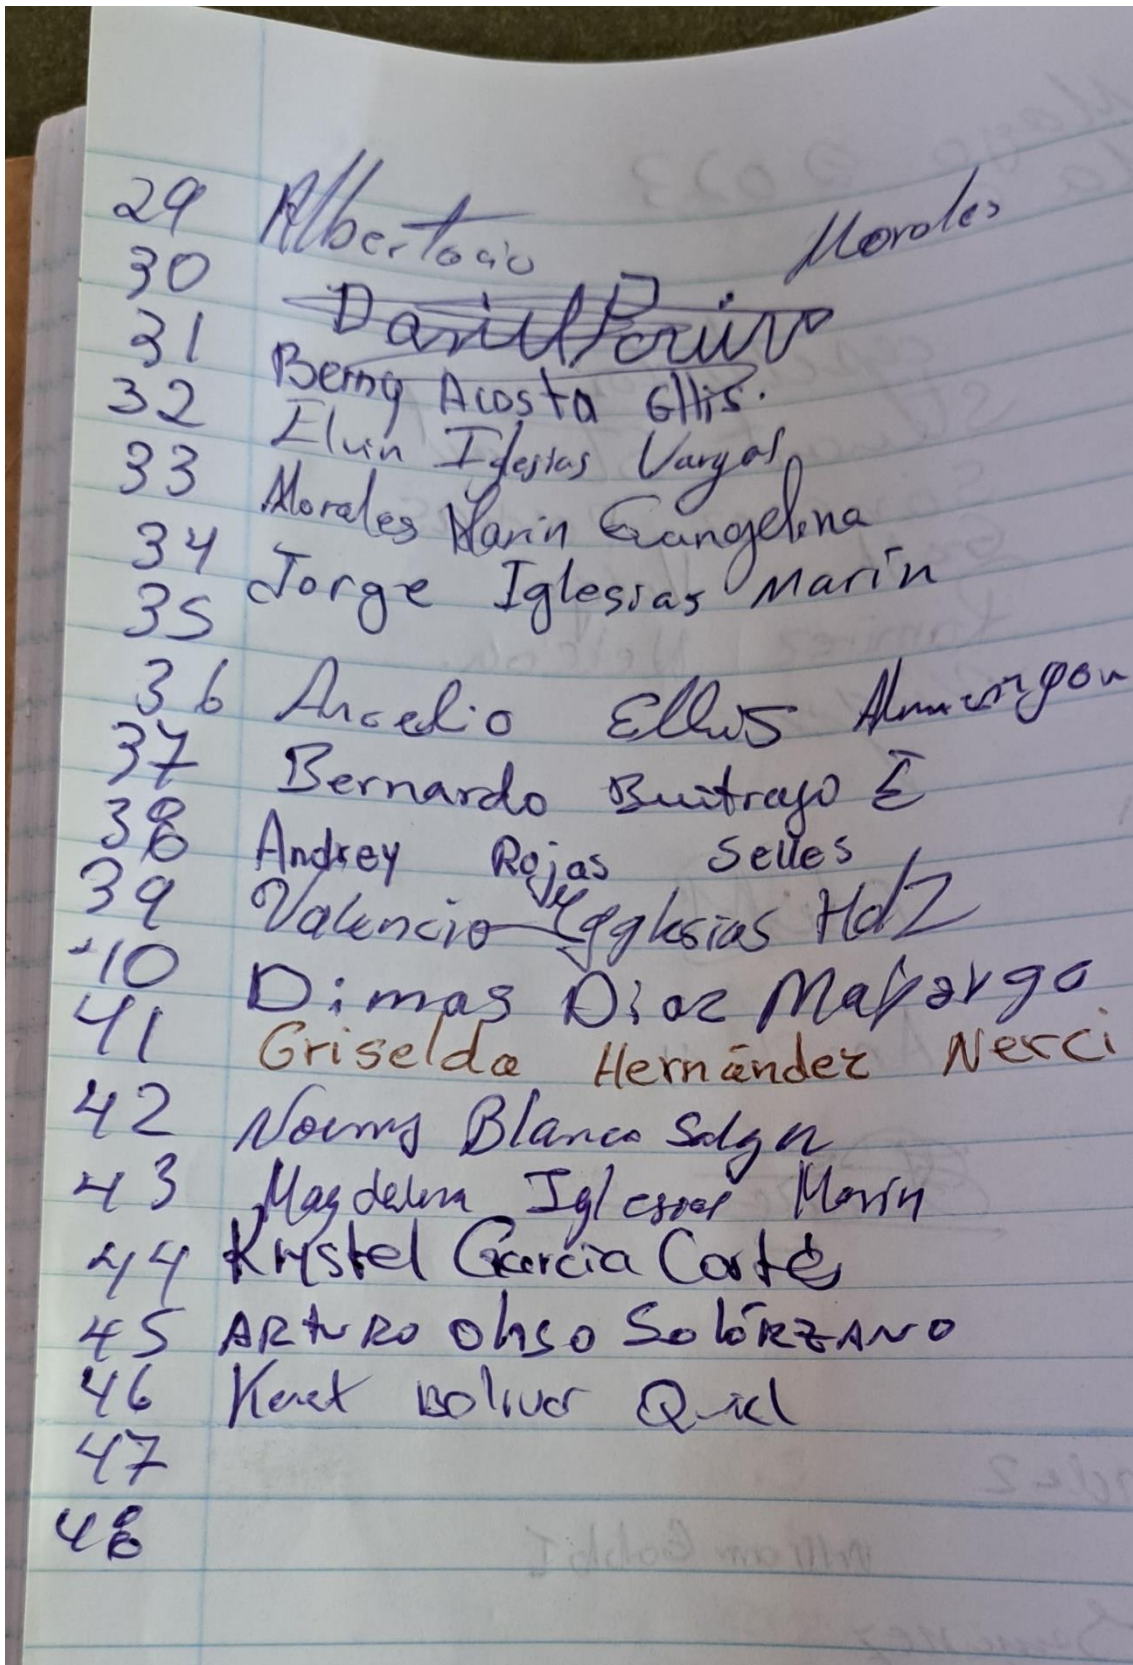 29 Albertacio Morales
30 Daniel
31 Berny Acosta Ellis.
32 Elvin Iglesias Vargas
33 Morales Marin Evangelina
34 Jorge Iglesias Marín
35
36 Ancelio Ellis
37 Bernardo Buitrago E
38 Andrey Rojas Selles
39 Valencio Yglesias Hdz
40 Dimas Diaz
41 Griselda Hernández Nerci
42 Blanco
43 Magdalena Iglesias Marin
44 Krystel García Cortés
45 ARTURO Obso SolóRZANO
46 Kenet Bolivar Quiel
47
48